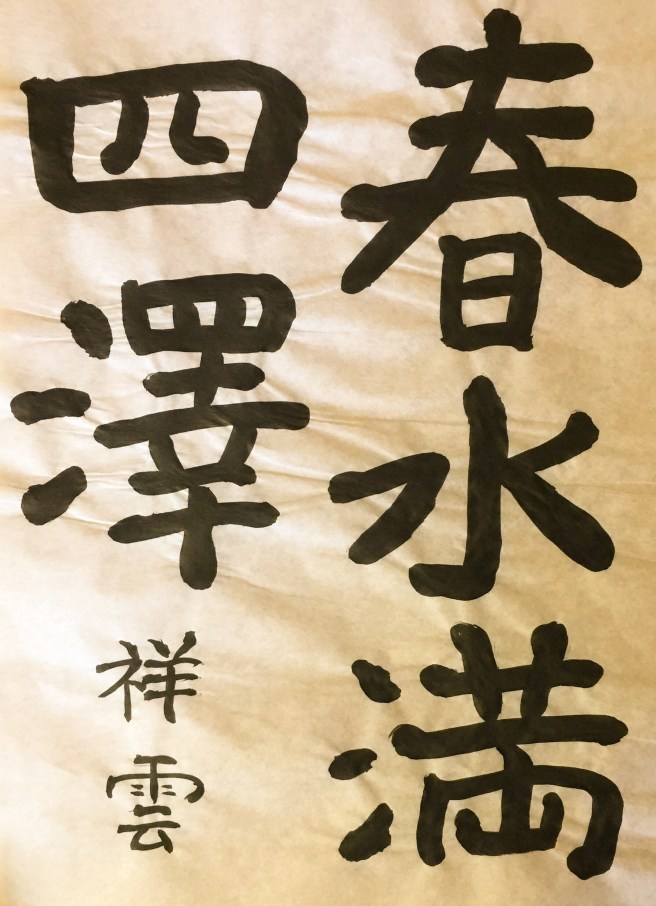 春水満
四澤
祥雲